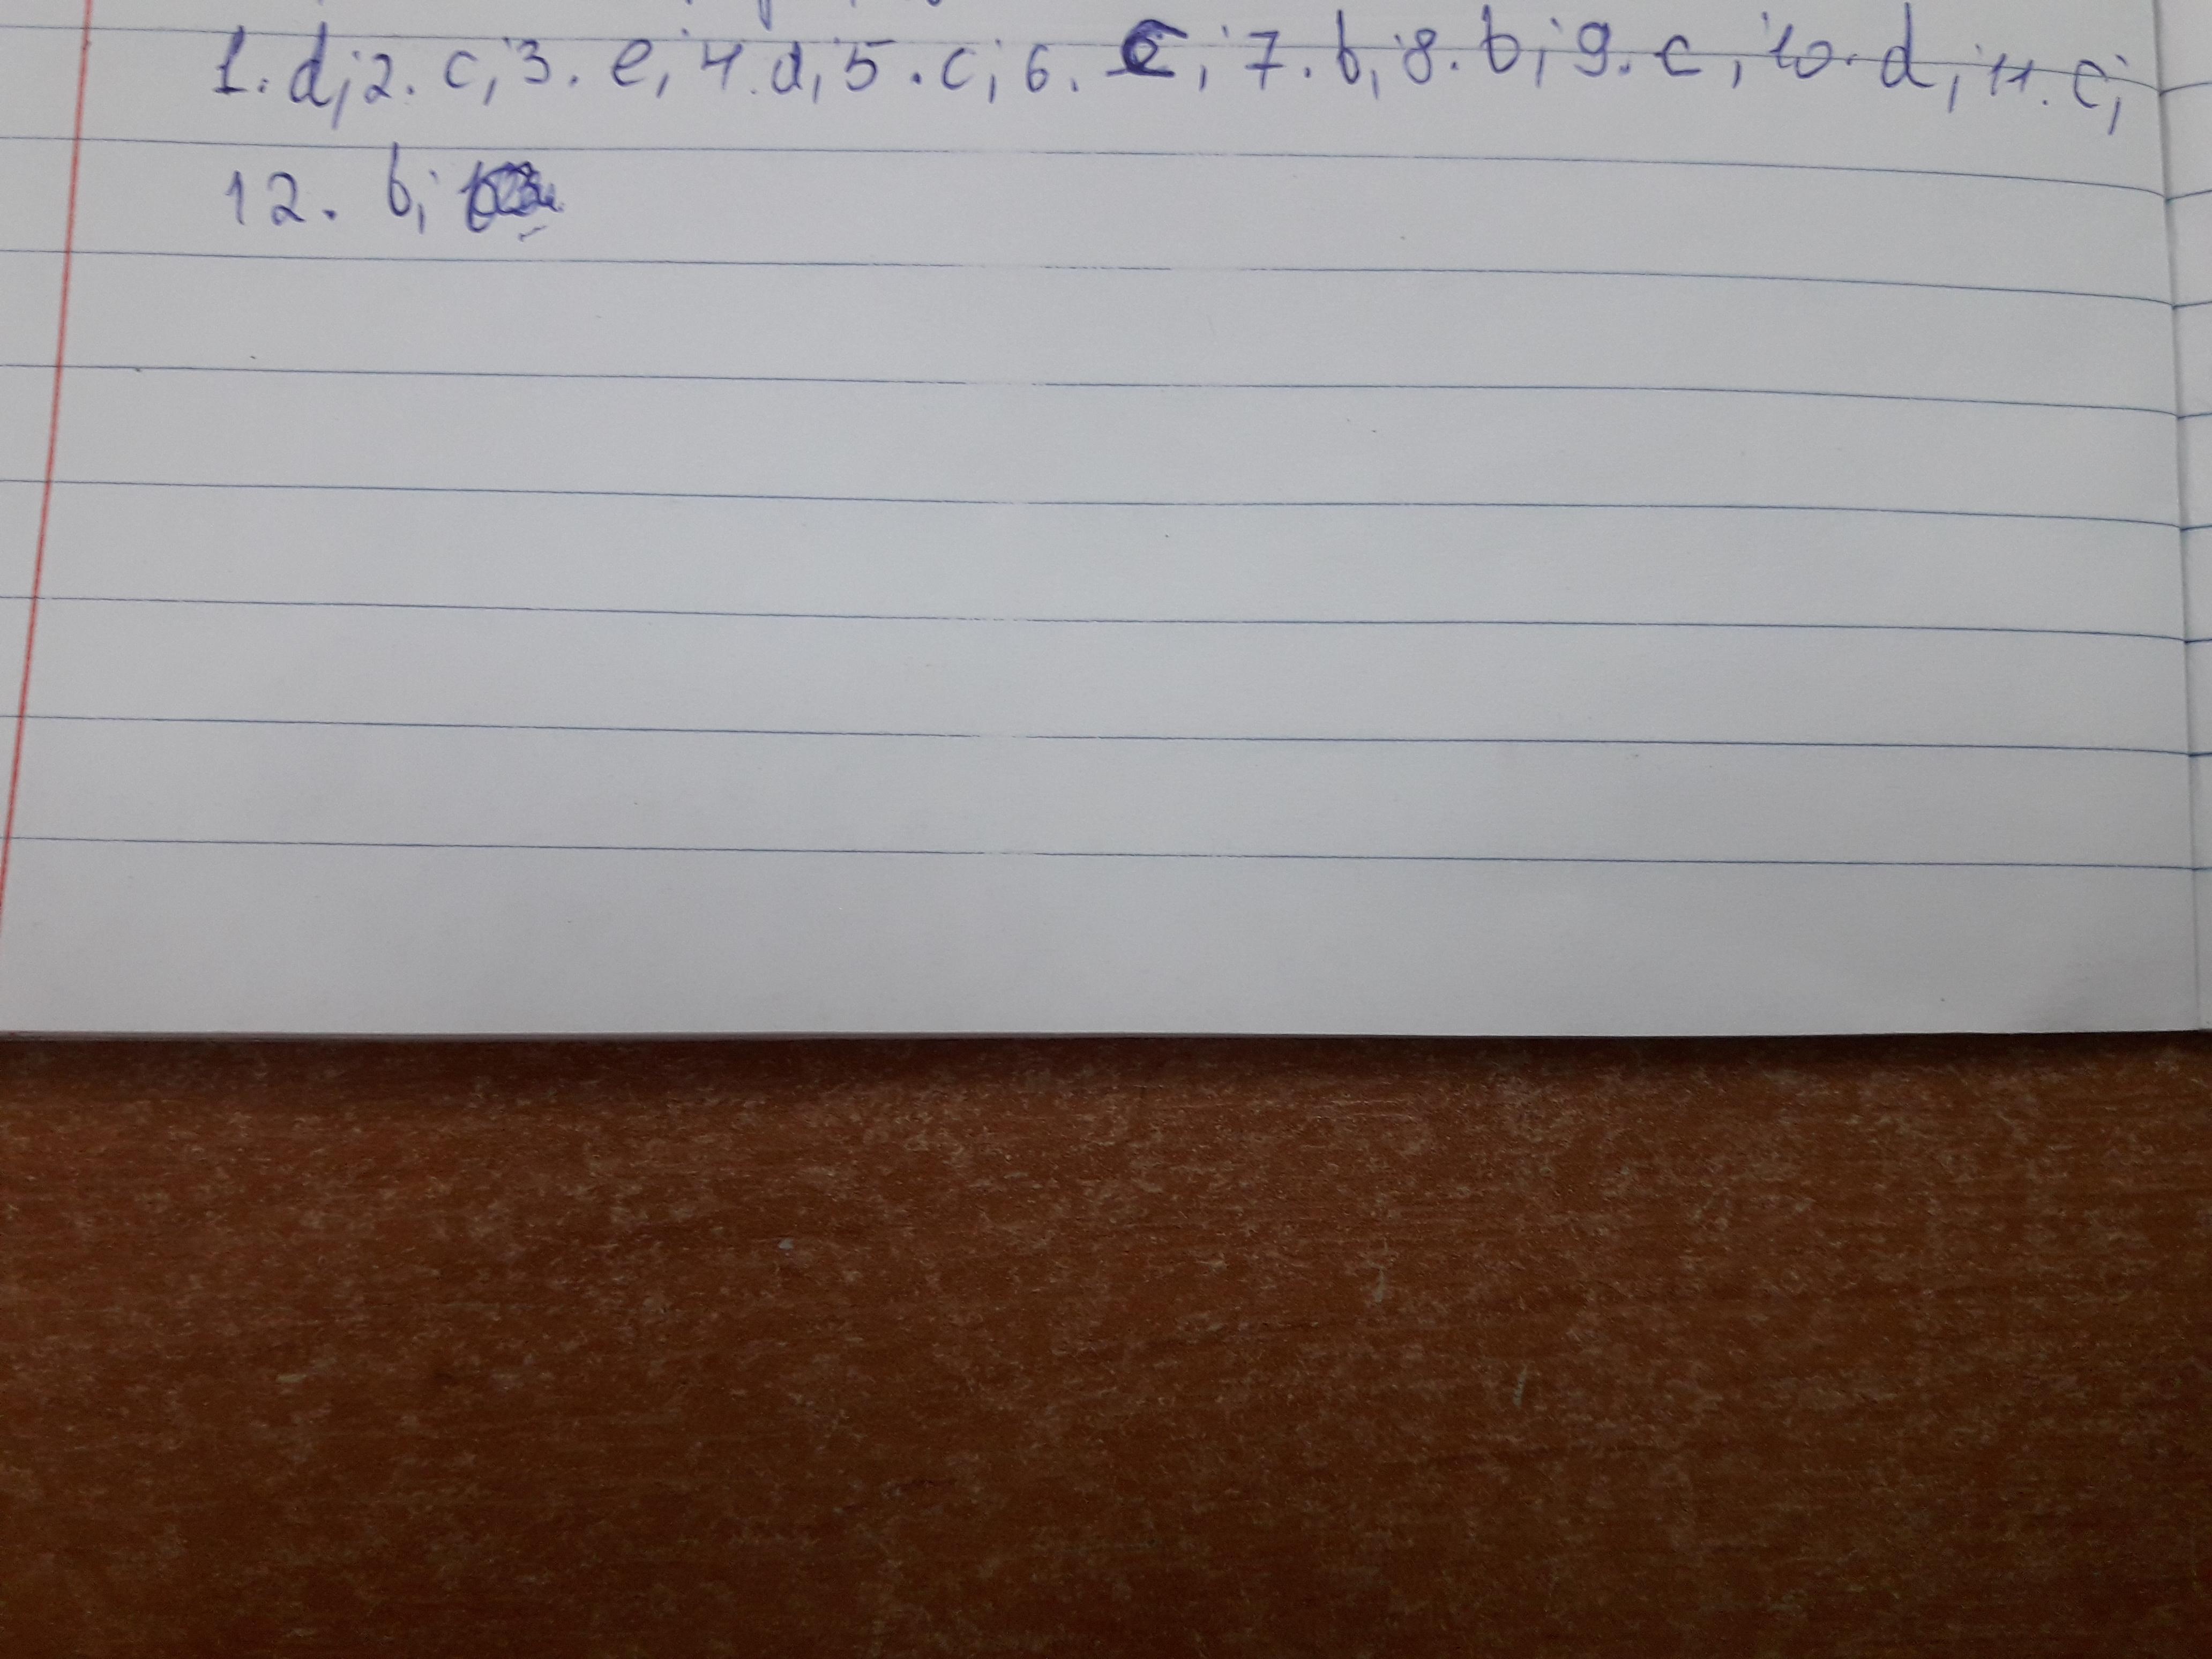 1. d; 2. c; 3. e; 4. d; 5. c; 6. c; 7. b; 8. b; 9. c; 10. d; 11. c;
12. b;